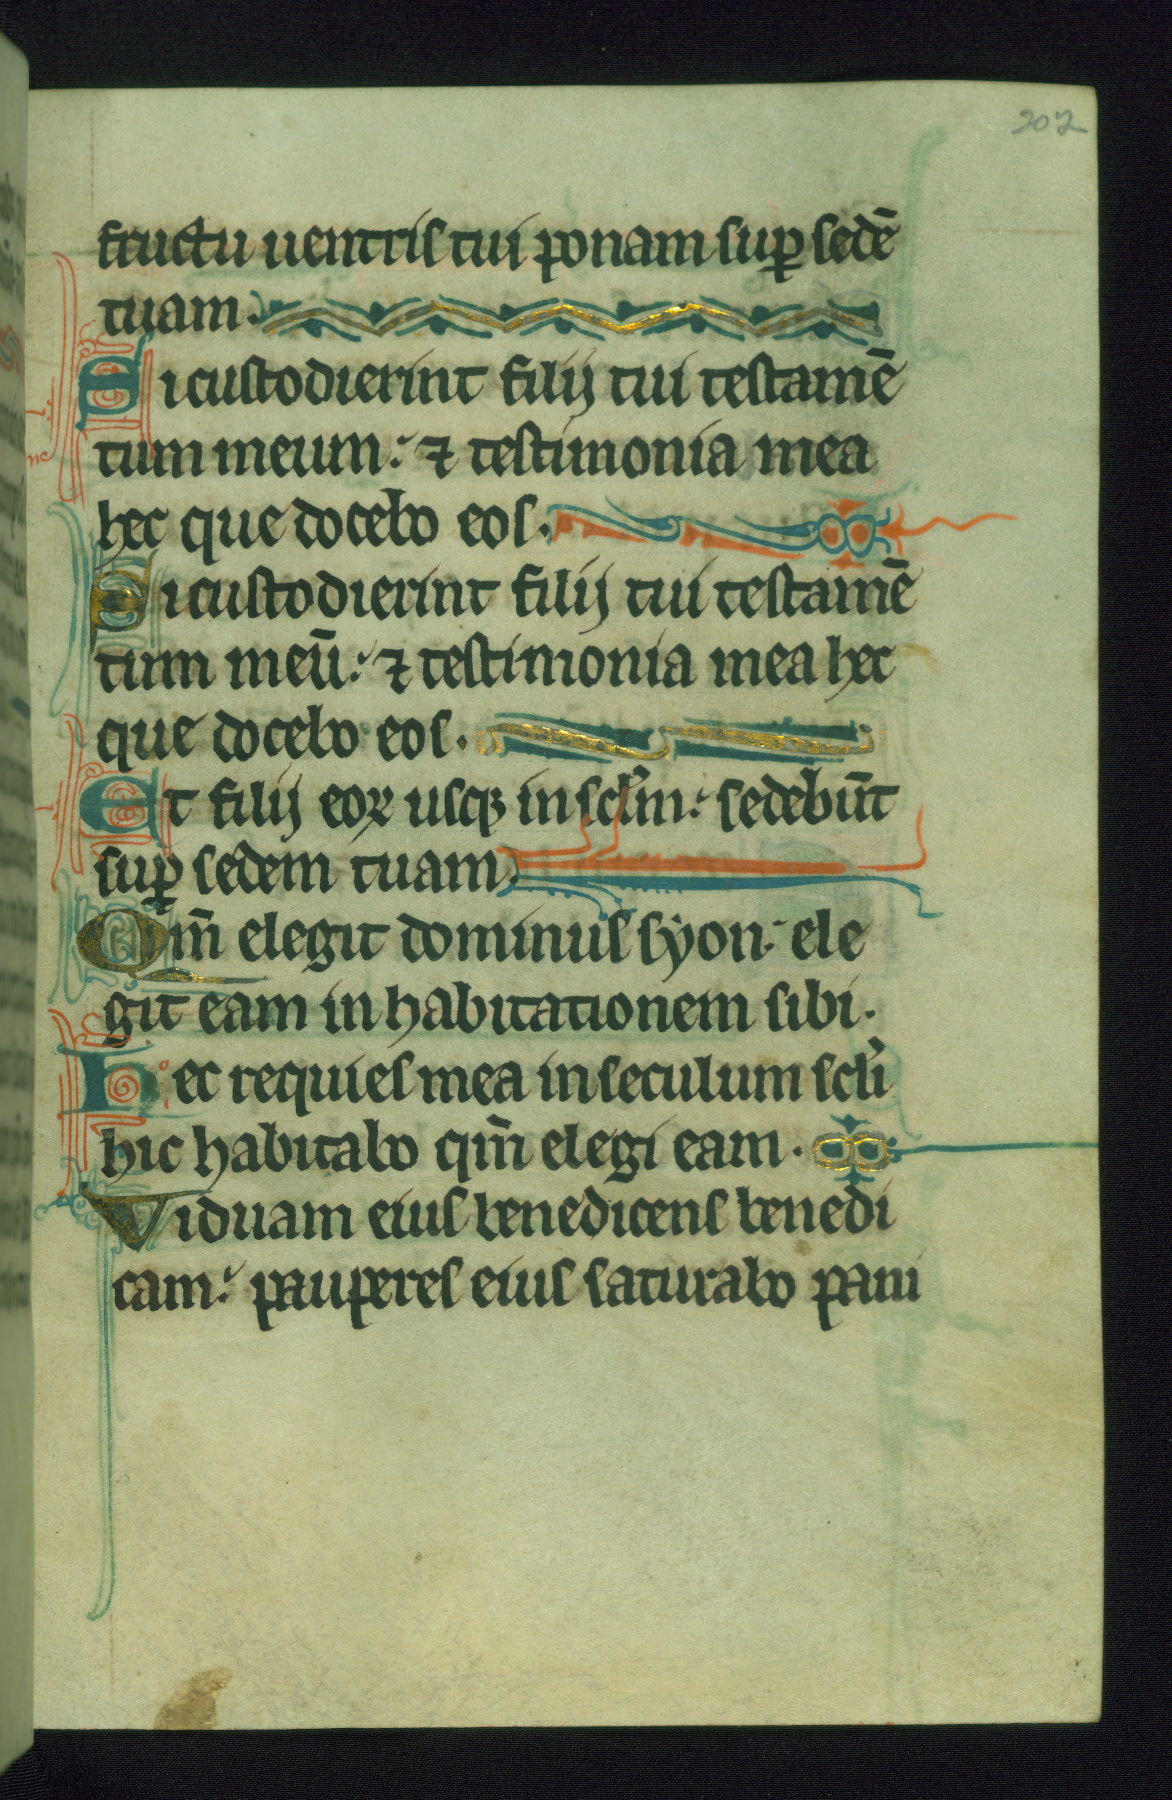 202
fructu uentris tui ponam sup sedē
tuam.
Si custodierint filij tui testamē
tum meum: ⁊ testimonia mea
hec que docebo eos.
Si custodierint filij tui testamē
tum meū: ⁊ testimonia mea hec
que docebo eos.
Et filij eoꝝ usqꝫ in sclm: sedebūt
suꝑ sedem tuam.
Qm̄ elegit dominus syon: ele
git eam in habitationem sibi.
Hec requies mea in seculum scli
hic habitabo qm̄ elegi eam.
Viduam eius benedicens benedi
cam: pauperes eius saturabo pani